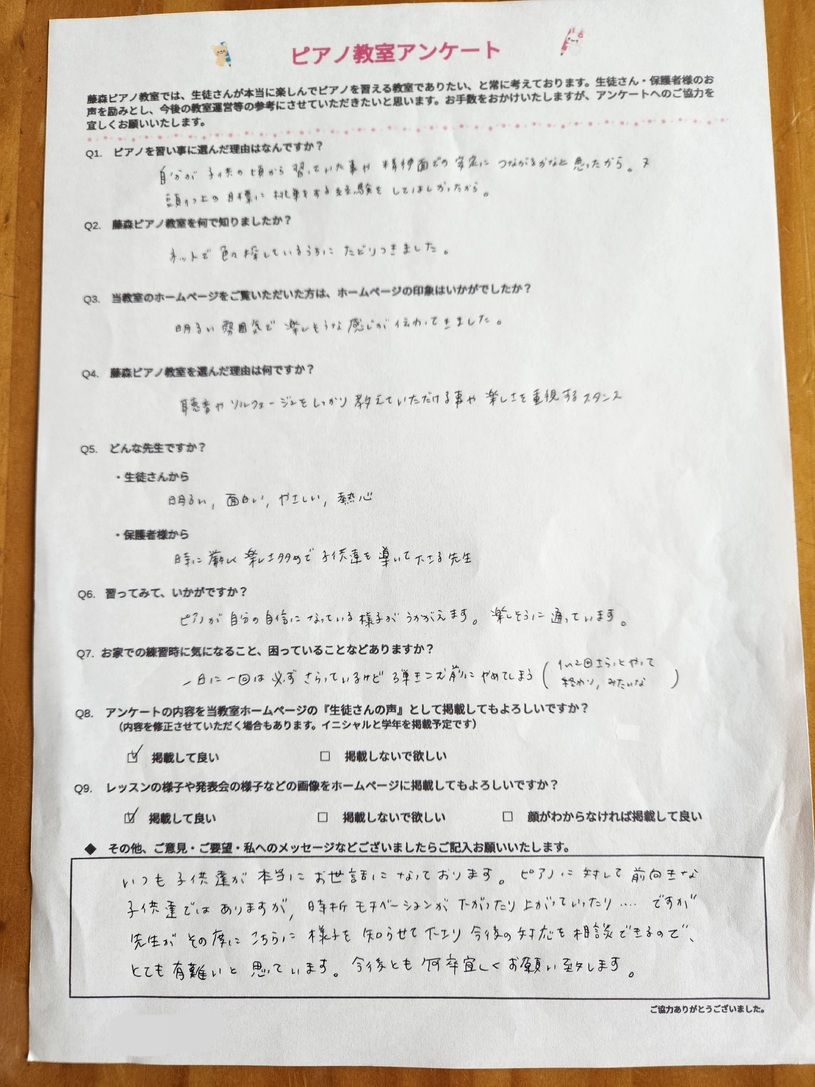 ピアノ教室アンケート
藤森ピアノ教室では、生徒さんが本当に楽しんでピアノを習える教室でありたい、と常に考えております。生徒さん・保護者様のお
声を励みとし、今後の教室運営等の参考にさせていただきたいと思います。お手数をおかけいたしますが、アンケートへのご協力を
宜しくお願いいたします。
Q1. ピアノを習い事に選んだ理由はなんですか？
自分が子供の頃から習っていた事や 精神面での安定に つながるかなと思ったから。又
頭1つ上の目標に挑戦をする経験を してほしかったから。
Q2. 藤森ピアノ教室を何で知りましたか？
ネットで色々探しているうちに たどりつきました。
Q3. 当教室のホームページをご覧いただいた方は、ホームページの印象はいかがでしたか？
明るい雰囲気で 楽しそうな感じが伝わってきました。
Q4. 藤森ピアノ教室を選んだ理由は何ですか？
聴音やソルフェージュをしっかり教えていただける事や 楽しさを重視するスタンス
Q5. どんな先生ですか？
・生徒さんから
明るい, 面白い, やさしい, 熱心
・保護者様から
時に厳しく 楽しさ多めで 子供達を 導いて下さる先生
Q6. 習ってみて、いかがですか？
ピアノが自分の自信になっている様子がうかがえます。楽しそうに通っています。
Q7. お家での練習時に気になること、困っていることなどありますか？
一日に一回は必ず さらっているけど 弾きこむ前に やめてしまう (1〜2回さらっとやって
終わり, みたいな)
Q8. アンケートの内容を当教室ホームページの『生徒さんの声』として掲載してもよろしいですか？
（内容を修正させていただく場合もあります。イニシャルと学年を掲載予定です）
☑ 掲載して良い □ 掲載しないで欲しい
Q9. レッスンの様子や発表会の様子などの画像をホームページに掲載してもよろしいですか？
☑ 掲載して良い □ 掲載しないで欲しい □ 顔がわからなければ掲載して良い
◆ その他、ご意見・ご要望・私へのメッセージなどございましたらご記入お願いいたします。
いつも子供達が本当にお世話になっております。ピアノに対して前向きな
子供達ではありますが, 時折 モチベーションが 下がったり上がっていったり‥‥ ですが
先生が その度に こちらに 様子を 知らせて下さり 今後の対応を相談できるので、
とても有難いと 思っています。今後とも何卒宜しくお願い致します。
ご協力ありがとうございました。